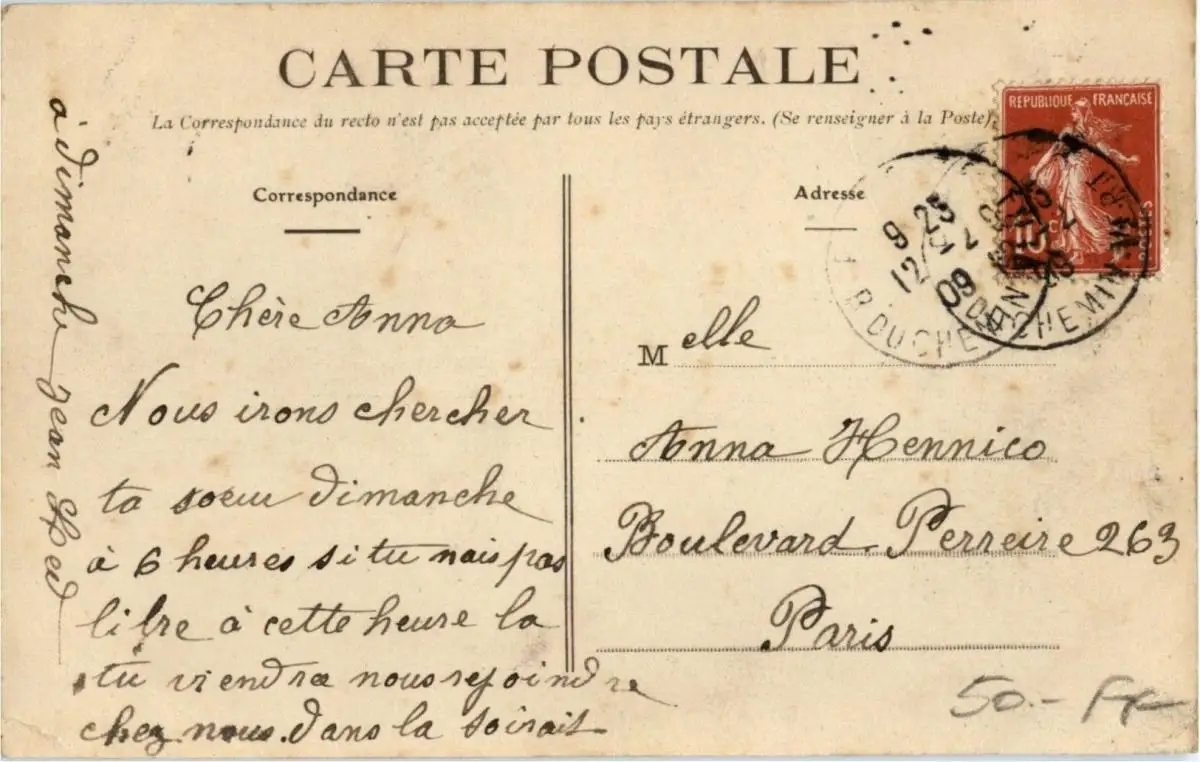 CARTE POSTALE
La Correspondance du recto n'est pas acceptée par tous les pays étrangers. (Se renseigner à la Poste).
Correspondance
Chère Anna
Nous irons chercher
ta soeur dimanche
à 6 heures si tu nais pas
libre à cette heure la
tu viendra nous rejoindre
chez nous. Dans la soirait
à dimanche Jean
Adresse
Melle
Anna Hennico
Boulevard. Perreire 263
Paris
REPUBLIQUE FRANÇAISE
10 c
9 25
12 / 2
09
R DUCHEMIN
50.- Fr